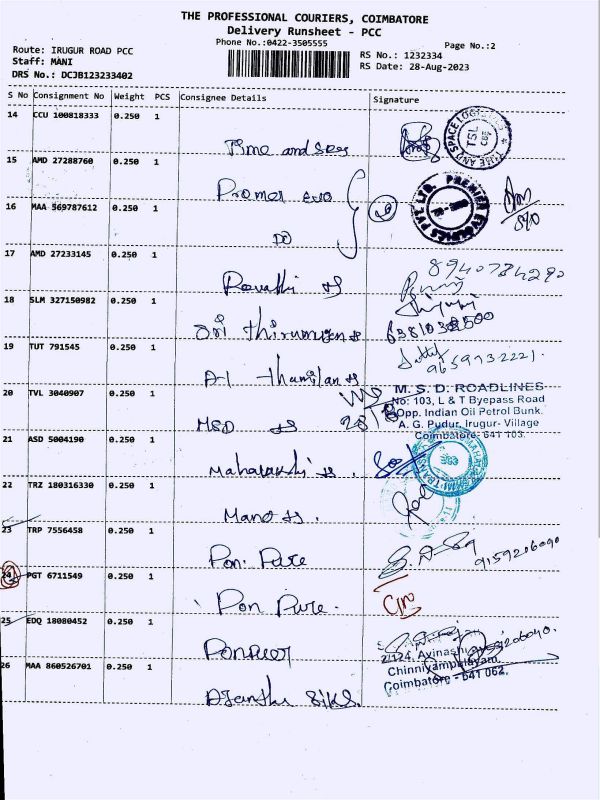 THE PROFESSIONAL COURIERS, COIMBATORE
Delivery Runsheet - PCC
Phone No.:0422-3505555
Page No.:2
Route: IRUGUR ROAD PCC
Staff: MANI
DRS No.: DCJB123233402
RS No.: 1232334
RS Date: 28-Aug-2023
S No Consignment No Weight PCS Consignee Details Signature
14 CCU 100818333 0.250 1
Time and
TIME AND SPACE LOGISTICS
TSL
CBE
15 AMD 27288760 0.250 1
PREMIER EVOLVICS PVT LTD.
16 MAA 569787612 0.250 1
DO
17 AMD 27233145 0.250 1
Revathi
8940784290
18 SLM 327150982 0.250 1
Sri
19 TUT 791545 0.250 1
A-1 Thamilan
9659932221
20 TVL 3040907 0.250 1
MSD
28/8
M. S. D. ROADLINES
No: 103, L & T Byepass Road
Opp. Indian Oil Petrol Bunk.
A. G. Pudur, Irugur- Village
Coimbatore- 641 103.
21 ASD 5004190 0.250 1
22 TRZ 180316330 0.250 1
23 TRP 7556458 0.250 1
Pon. Pure
9159206090
24 PGT 6711549 0.250 1
Pon Pure.
25 EDQ 18080452 0.250 1
2/124, Avinashi
Chinniyampalayam,
Coimbatore - 641 062.
26 MAA 860526701 0.250 1